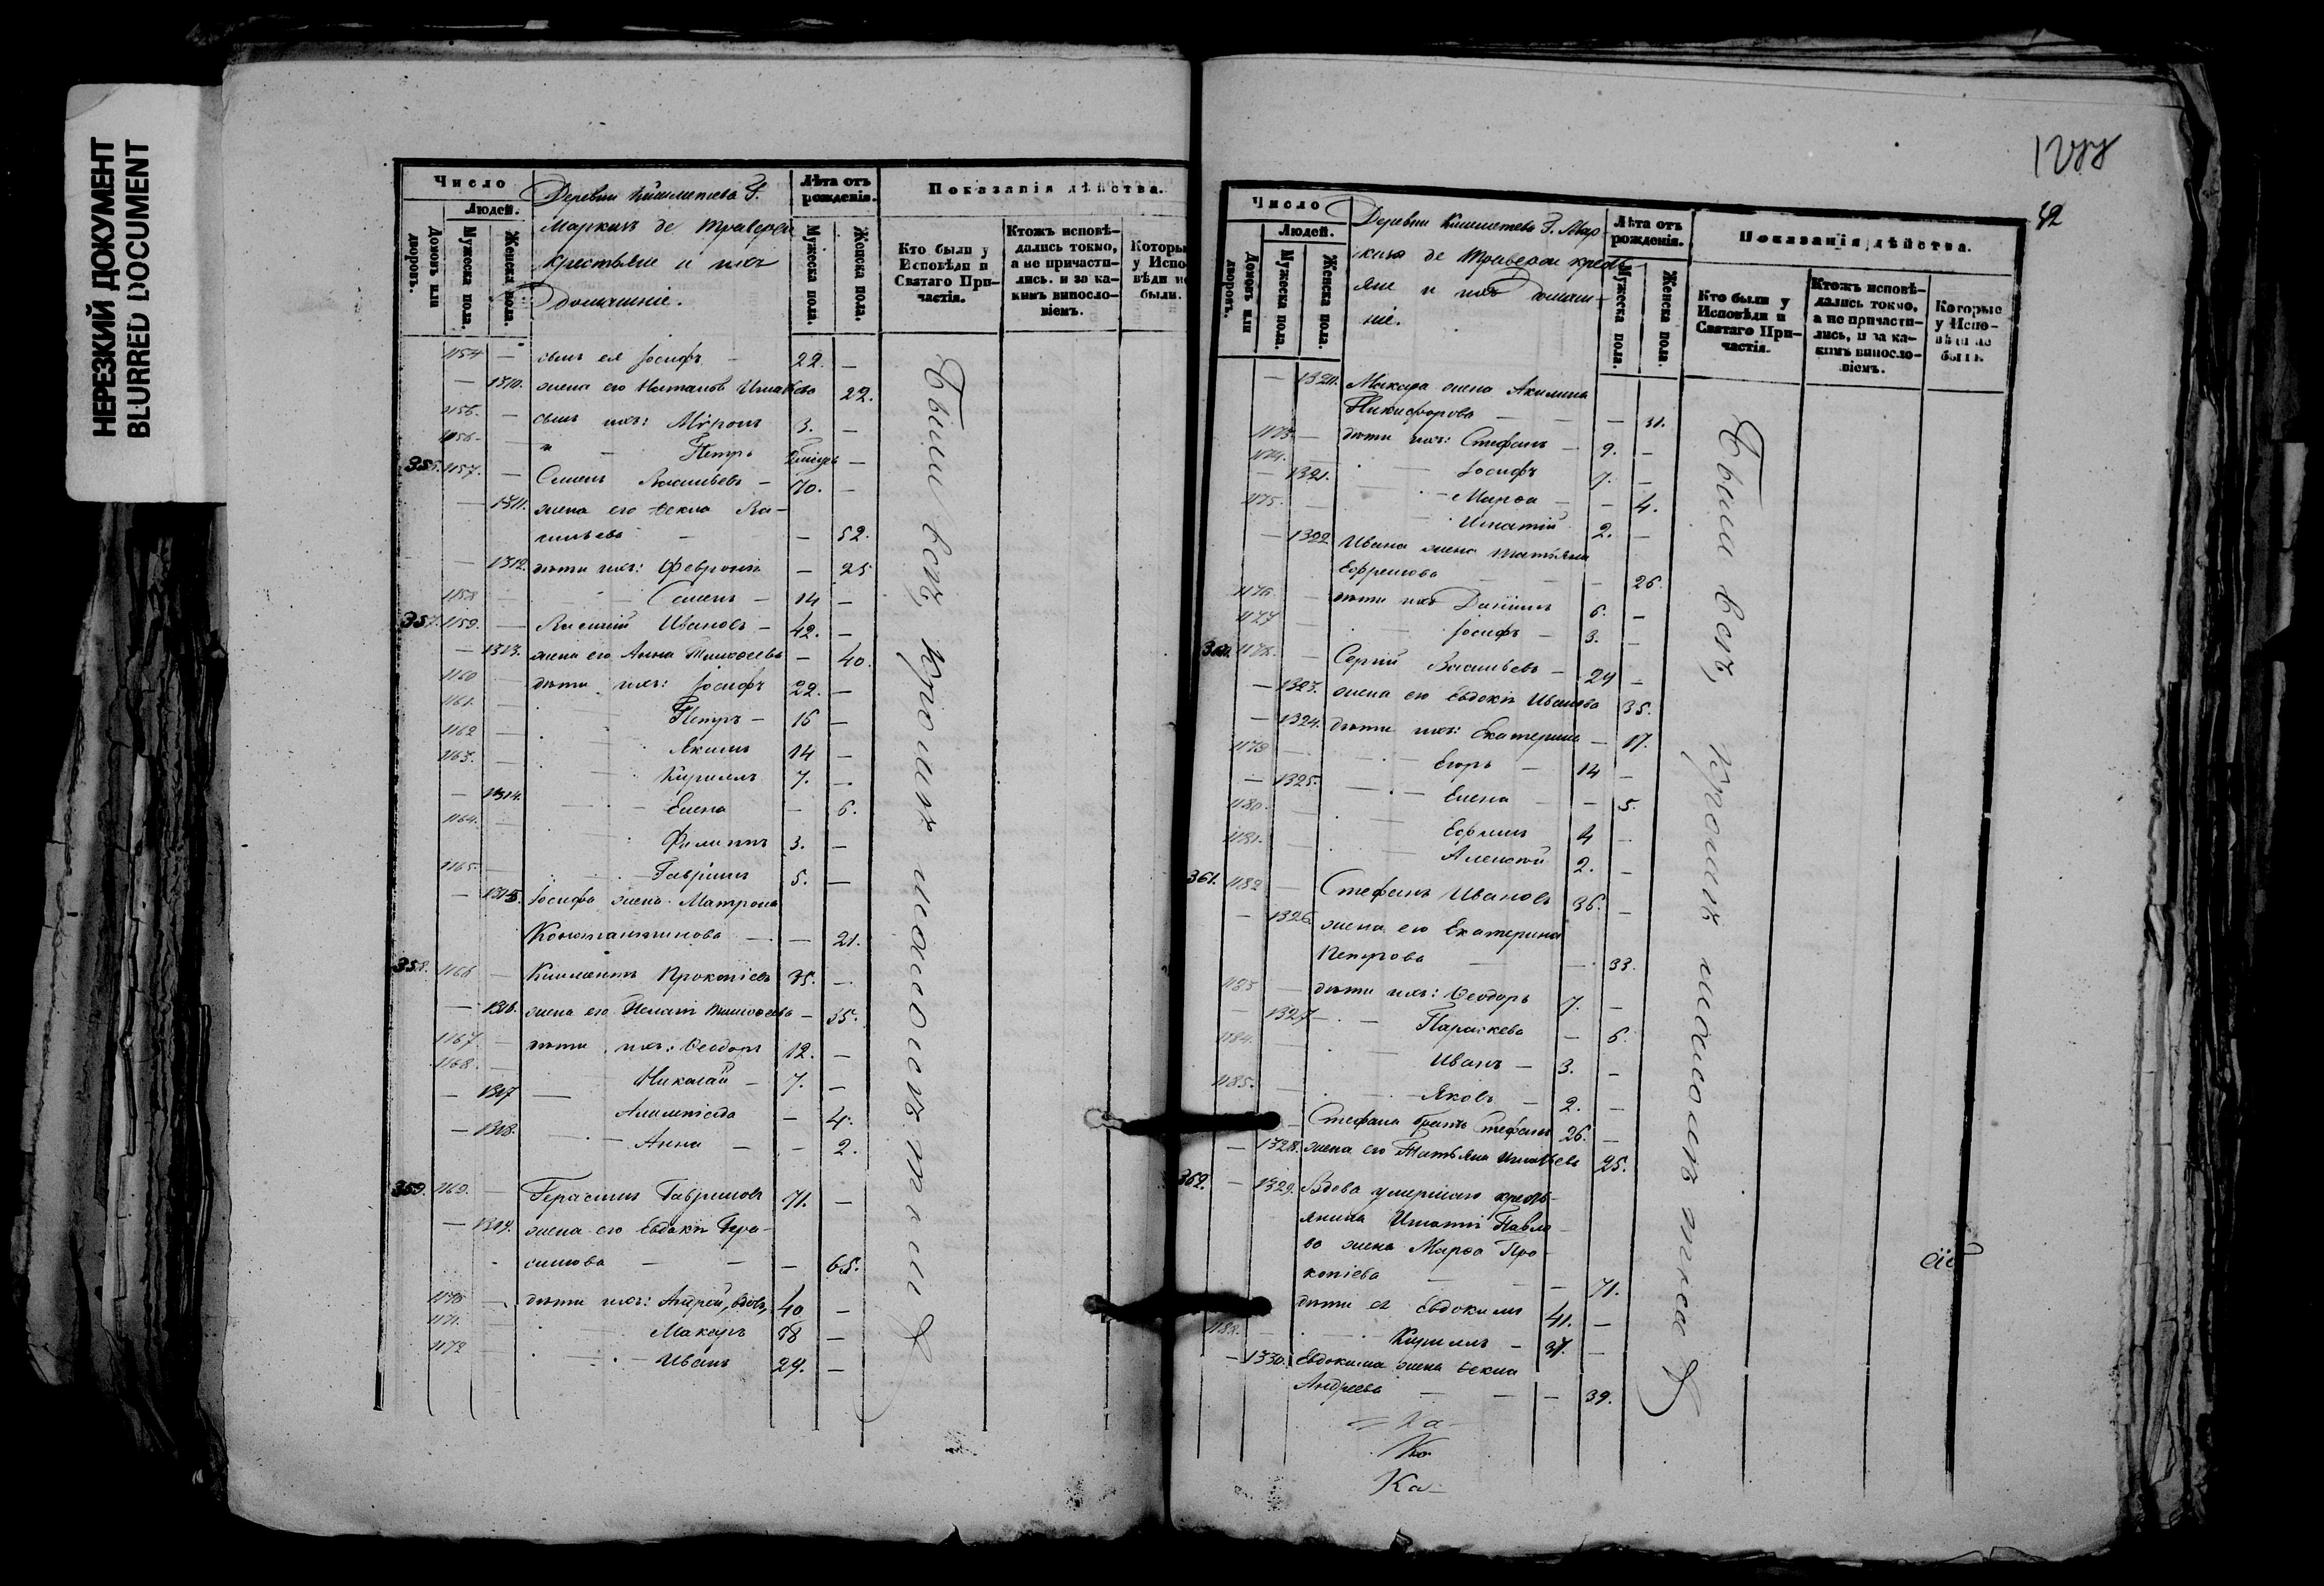 НЕРЕЗКИЙ ДОКУМЕНТ
BLURRED DOCUMENT
Число
Людей.
Домовъ или дворовъ.
Мужеска пола.
Женска пола.
Деревни
Маркизъ де Траверсе
Крестьяне и ихъ
Домашніе.
Лѣта отъ рожденія.
Мужеска пола.
Женска пола.
Показанія дѣйства.
Кто были у Исповѣди и Святаго Причастія.
Ктожъ исповѣдались токмо, а не причастились, и за какимъ винословіемъ.
Которы у Испо вѣди не были.
1154 — сынъ ея Іосифъ — 22. —
— 1310. жена его 22.
1155. — сынъ ихъ: Мѵронъ 3. —
1156. — Петръ —
1157. — Семенъ Васильевъ — 70. —
— 1311. жена его Ѳекла Ва-
сильева — — 52.
— 1312. дѣти ихъ: Февронія — 25
1158 — Семенъ — 14 —
357. 1159. — Василий Ивановъ — 42. —
— 1313. жена его Анна Тимоѳеева — 40.
1160 — дѣти ихъ: Іосифъ 22. —
1161. — Петръ — 16 —
1162 — Якимъ 14 —
1163. — Кириллъ 7. —
— 1314. Елена — 6.
1164. — Филиппъ 3. —
1165. — Гавріилъ 5. —
— 1315. Іосифа жена Матрона
Константинова — — 21.
358. 1166 — Климентъ Прокопіевъ 35. —
— 1316. жена его Тимоѳеева — 35.
1167. — дѣти ихъ: Ѳеодоръ 12. —
1168. — Николай — 7. —
— 1317 Алимпіада — 4.
— 1318. Анна — — 2.
359. 1169. — Герасимъ Гавриловъ 71. —
— 1319. жена его Евдокія Гера-
симова — — — 65.
1170 — дѣти ихъ: Андрей, вдовъ, 40 —
1171. Макаръ 38 —
1172 — Иванъ 29. —
Были всѣ, кромѣ малолѣтнихъ
42
Число
Людей.
Домовъ или дворовъ.
Мужеска пола.
Женска пола.
Деревни Г. Мар-
кизъ де Траверсе кресть-
яне и ихъ домаш-
ніе.
Лѣта отъ рожденія.
Мужеска пола.
Женска пола.
Показанія дѣйства.
Кто были у Исповѣди и Святаго Причастія.
Ктожъ исповѣдались токмо, а не причастились, и за какимъ винословіемъ.
Которые у Исповѣди не были.
— 1320. Макара жена Акилина
Никифорова — — 31.
1173. — дѣти ихъ: Стефанъ — 9. —
1174. Іосифъ 7. —
— 1321. Марѳа — — 4.
1175. — Игнатій 2. —
— 1322 Ивана жена Татьяна
Ефремова — — — 26.
1176. — дѣти ихъ Даніилъ 6. —
1177 — Іосифъ — 3. —
360. 1178. — Сергій Васильевъ — —
— 1323. жена его Евдокія Иванова 35.
— 1324. дѣти ихъ: Екатерина — 17.
1179 — Егоръ — 14 —
— 1325. Елена — — 5.
1180. — Ефремъ 4 —
1181. — Алексѣй 2. —
361. 1182 — Стефанъ Ивановъ 36. —
— 1326. жена его Екатерина
Петрова — — 33.
1183 — дѣти ихъ: Ѳеодоръ 7. —
— 1327 Параскева — 6.
1184. Иванъ — 3. —
1185. — Яковъ — 2. —
Стефана братъ Стефанъ 26. —
— 1328. жена его Татьяна 25.
362. — 1329. Вдова умершаго кресть-
янина Игнатія Павло-
ва жена Марѳа Про-
копіева — — — 71.
дѣти ея Евдокимъ 41. —
1188. — Кириллъ — 37. —
— 1330. Евдокима жена Ѳекла
Андреева — — — 39.
Ка-
Были всѣ, кромѣ малолѣтнихъ